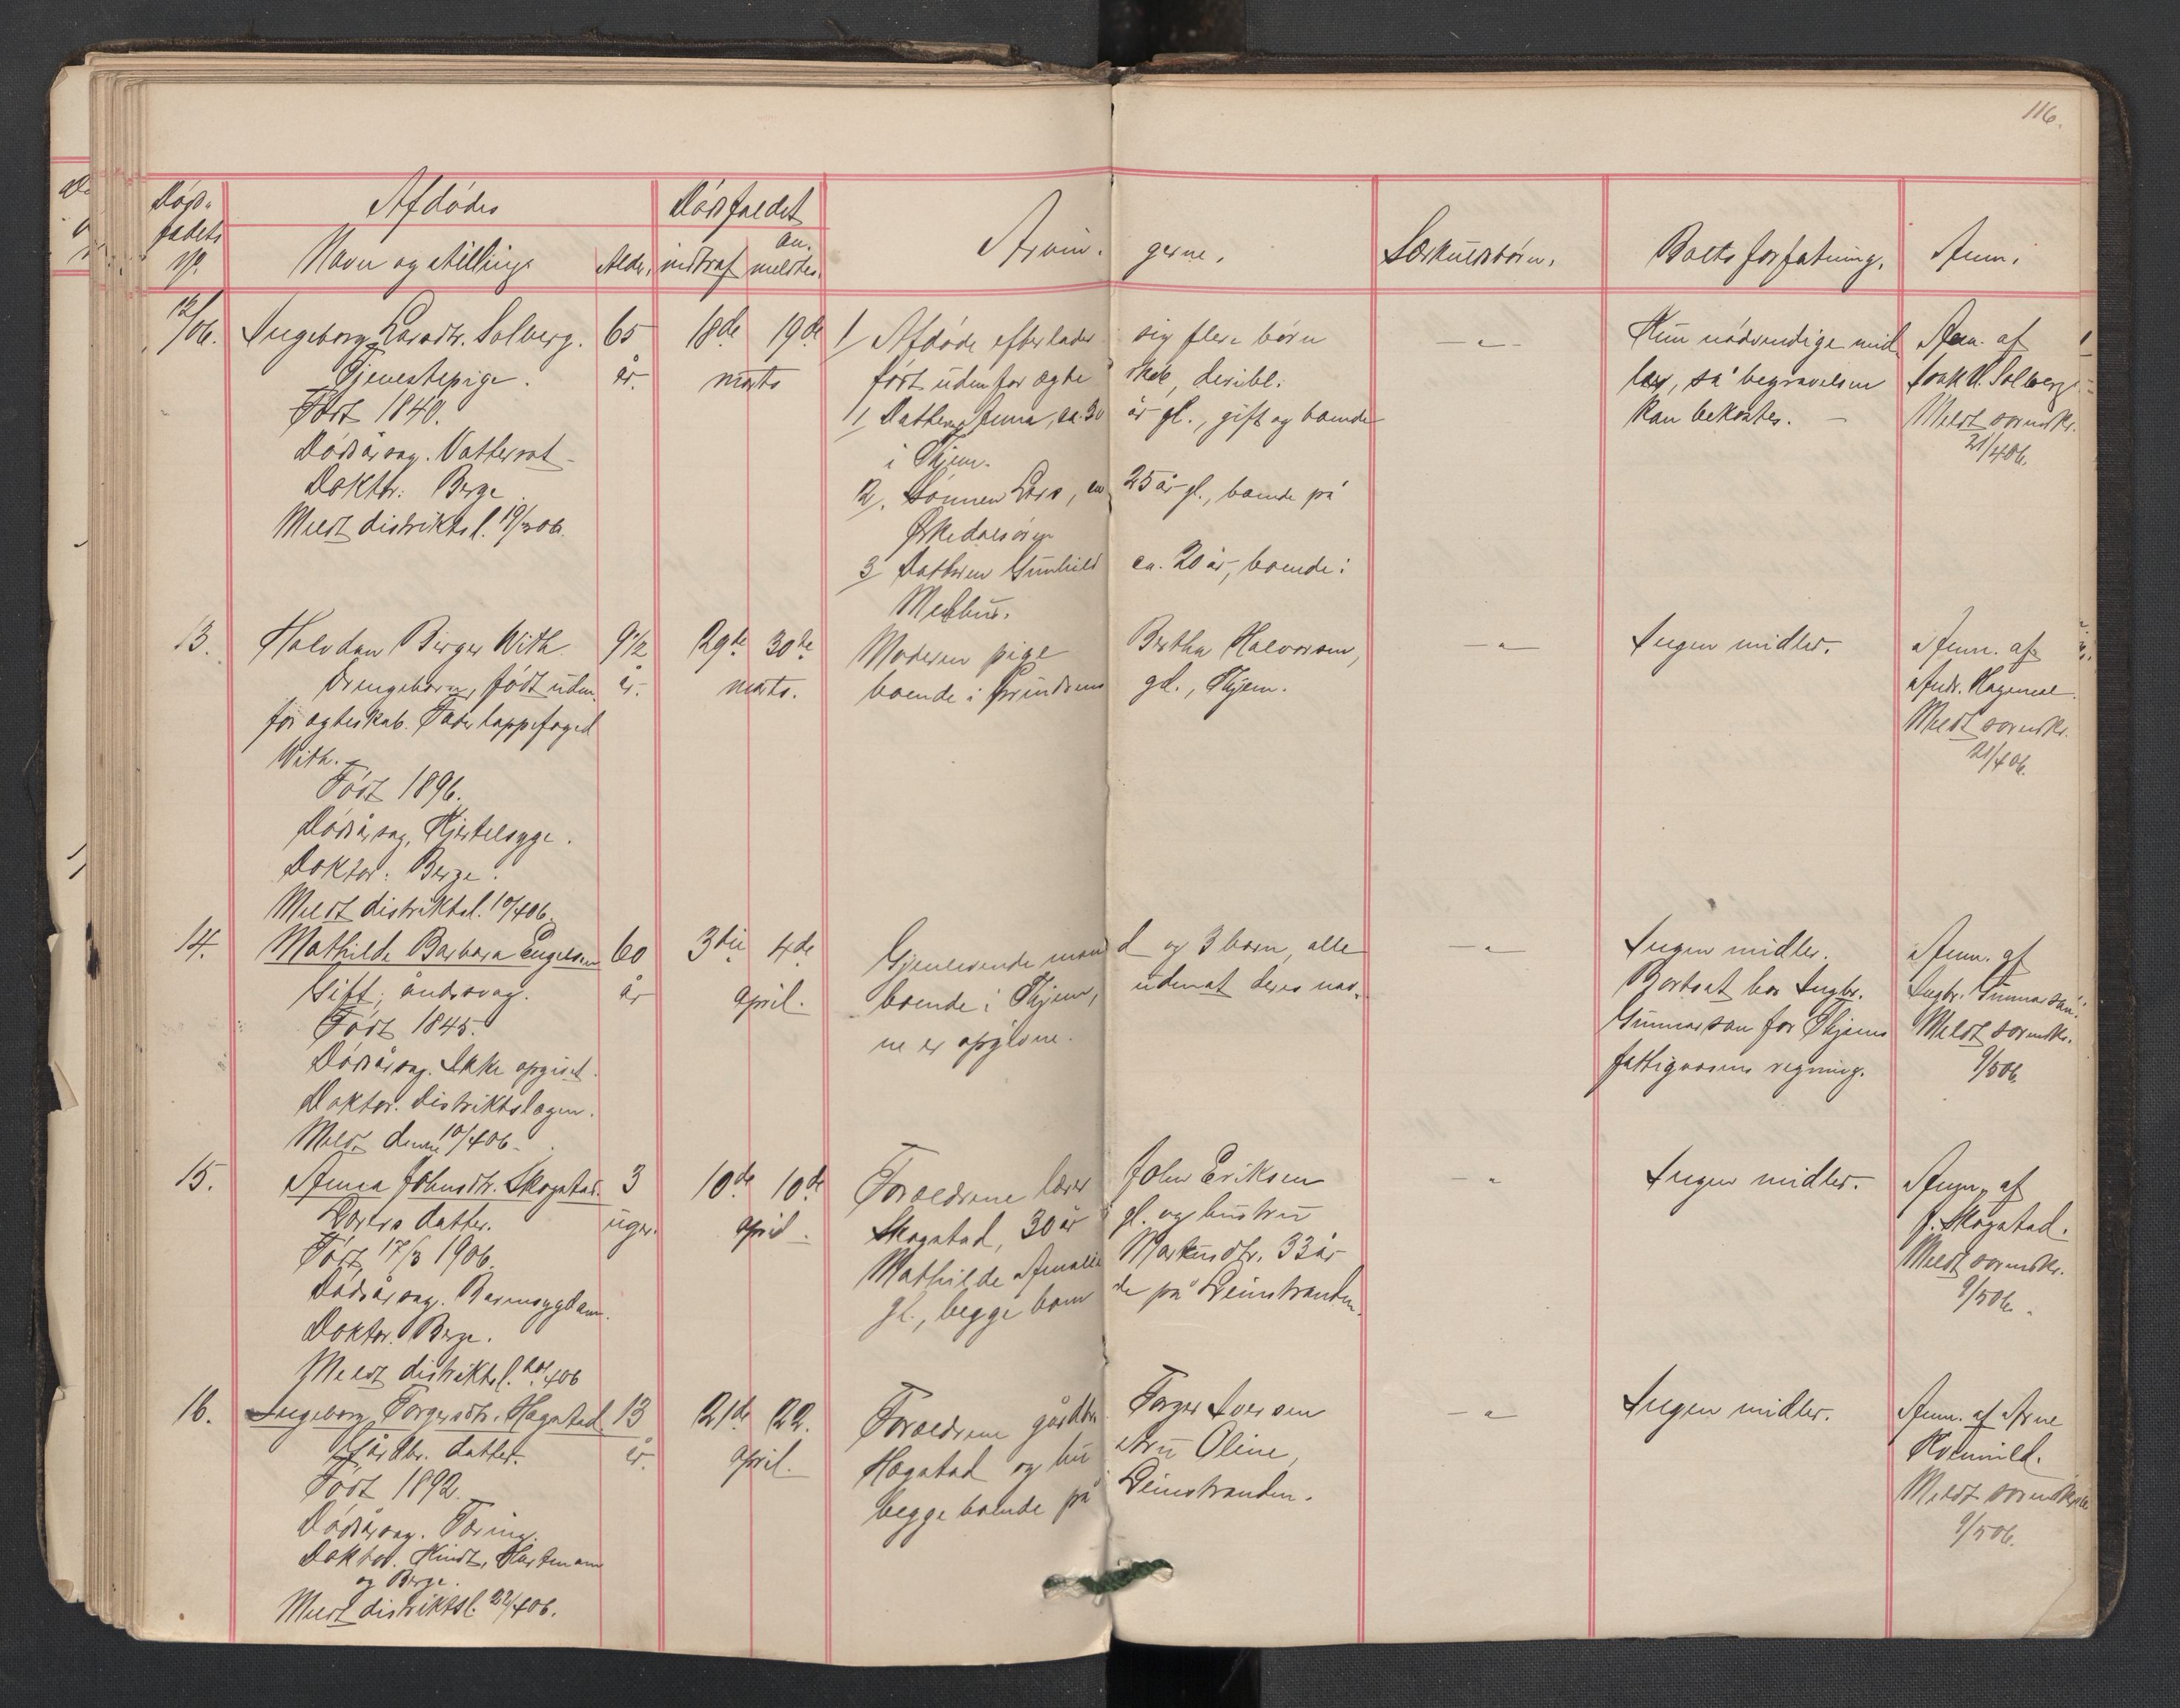 116.
Døds-
faldets
No.
Afdødes
Navn og stilling
Alder.
Dødsfaldet
indtraf
an-
meldtes.
Arvin-
gerne.
Særkuldsbørn.
Boets forfatning.
Anm.
12/06.
Ingeborg Larsdtr. Solberg.
Tjenestepige.
Født 1840.
Dødsårsag. Vattersot
Doktor: Berge.
Meldt distriktsl. 19/3 06.
65
år.
18de 19de
marts
1/ Afdøde efterlader sig flere børn
født udenfor ægteskab, deribl.
1/ Datteren Anna, ca. 30 år gl., gift og boende
i Thjem.
2/. Sønnen Lars, ca 25 år gl., boende på
Ørkedalsøren
3/ Datteren Gunhild ca. 20 år, boende i
Melhus.
— " —
Kun nødvendige mid
ler, så begravelsen
kan bekostes. —
Anm. af
Solberg
Meldt sorenskr.
21/4 06.
13.
Halvdan Birger With
Drengebarn, født uden-
for ægteskab. Fader lappefoged
With.
Født 1896.
Dødsårsag, Hjertesyge.
Doktor: Berge.
Meldt distriktsl. 10/4 06.
9 1/2
år.
29de 30de
marts.
Moderen pige Bertha Halvorsen,
boende i gd., Thjem.
— " —
Ingen midler.
Anm. af
Andr. Hagensel.
Meldt sorenskr.
21/4 06.
14.
Mathilde Barbara Engelsen
Gift; åndssvag.
Født 1845.
Dødsårsag. Ikke opgivet.
Doktor. Distriktslægen.
Meldt denne 10/4 06.
60
år
3die 4de
april.
Gjenlevende mand og 3 børn, alle
boende i Thjem, udenat deres nav-
ne er opgivne.
— " —
Ingen midler.
Bortsat hos Ingbr.
Gunnarson for Thjems
fattigvæsens regning.
Anm. af
Ingbr. Gunnarson.
Meldt sorenskr.
9/5 06.
15.
Anna Johnsdtr. Skogstad.
Lærers datter.
Født 17/3 1906.
Dødsårsag. Barnesygdom.
Doktor. Berge.
Meldt distriktsl. 20/4 06
3
uger.
10de 10de
april.
Forældrene lærer John Eriksen
Skogstad, 30 år gl. og hustru
Mathilde Amalie Markusdtr. 33 år
gl., begge boende på Leinstranden.
— "
Ingen midler.
Anm. af
J. Skogstad.
Meldt sorenskr.
9/5 06.
16.
Ingeborg Torgersdtr. Hagstad.
Gårdbr. datter.
Født 1892.
Dødsårsag. Tæring.
Doktor. Hindt, Hartmann
og Berge.
Meldt distriktsl. 22/4 06.
13
år.
21de 22.
april.
Forældrene gårdbr. Torger Iversen
Hagstad og hustru Oline,
begge boende på Leinstranden.
— " —
Ingen midler.
Anm. af Arne
Meldt sorenskr.
9/5 06.